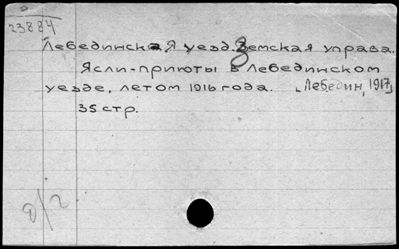 23884
Лебединская уезд. Земская управа.
Ясли-приюты в Лебединском
уезде, летом 1916 года. [Лебедин, 1917]
35 стр.